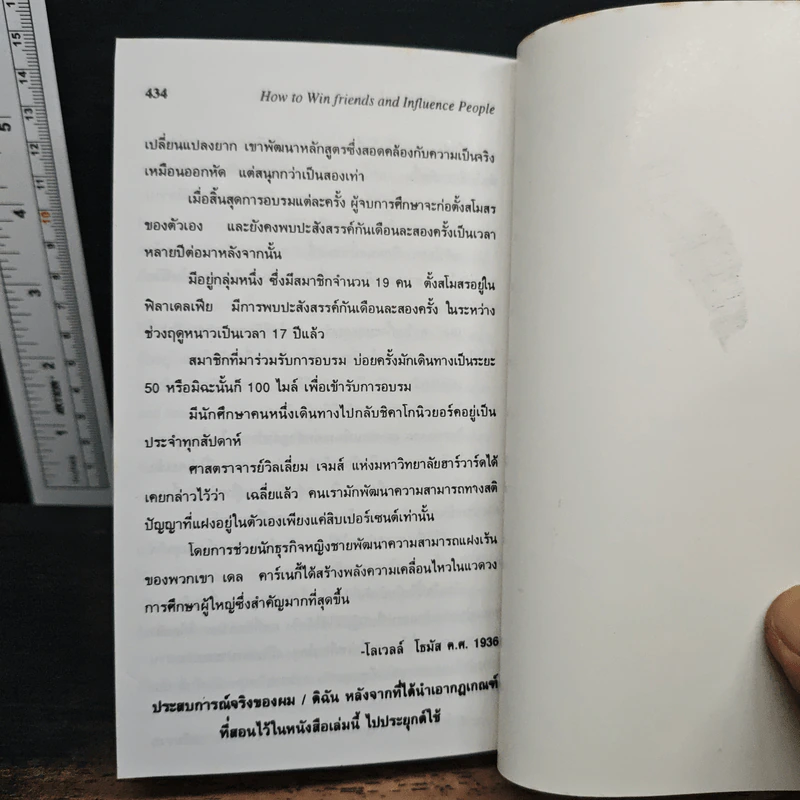 434
How to Win friends and Influence People
เปลี่ยนแปลงยาก เขาพัฒนาหลักสูตรซึ่งสอดคล้องกับความเป็นจริง
เหมือนออกหัด แต่สนุกกว่าเป็นสองเท่า
เมื่อสิ้นสุดการอบรมแต่ละครั้ง ผู้จบการศึกษาจะก่อตั้งสโมสร
ของตัวเอง และยังคงพบปะสังสรรค์กันเดือนละสองครั้งเป็นเวลา
หลายปีต่อมาหลังจากนั้น
มีอยู่กลุ่มหนึ่ง ซึ่งมีสมาชิกจำนวน 19 คน ตั้งสโมสรอยู่ใน
ฟิลาเดลเฟีย มีการพบปะสังสรรค์กันเดือนละสองครั้ง ในระหว่าง
ช่วงฤดูหนาวเป็นเวลา 17 ปีแล้ว
สมาชิกที่มาร่วมรับการอบรม บ่อยครั้งมักเดินทางเป็นระยะ
50 หรือมิฉะนั้นก็ 100 ไมล์ เพื่อเข้ารับการอบรม
มีนักศึกษาคนหนึ่งเดินทางไปกลับชิคาโกนิวยอร์คอยู่เป็น
ประจำทุกสัปดาห์
ศาสตราจารย์วิลเลี่ยม เจมส์ แห่งมหาวิทยาลัยฮาร์วาร์ดได้
เคยกล่าวไว้ว่า เฉลี่ยแล้ว คนเรามักพัฒนาความสามารถทางสติ
ปัญญาที่แฝงอยู่ในตัวเองเพียงแค่สิบเปอร์เซนต์เท่านั้น
โดยการช่วยนักธุรกิจหญิงชายพัฒนาความสามารถแฝงเร้น
ของพวกเขา เดล คาร์เนกี้ได้สร้างพลังความเคลื่อนไหวในแวดวง
การศึกษาผู้ใหญ่ซึ่งสำคัญมากที่สุดขึ้น
-โลเวลล์ โธมัส ค.ศ. 1936
ประสบการณ์จริงของผม / ดิฉัน หลังจากที่ได้นำเอากฎเกณฑ์
ที่สอนไว้ในหนังสือเล่มนี้ ไปประยุกต์ใช้
15
14
13
12
11
10
9
8
7
6
5
4
3
2
1
5
4
3
2
1